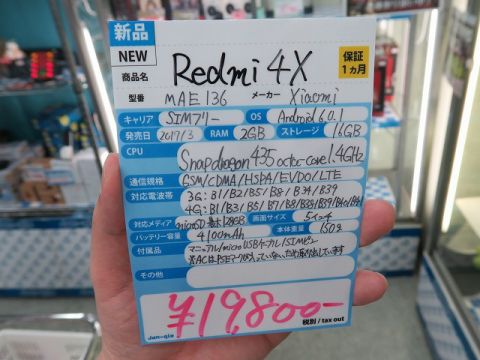 新品
NEW
商品名 Redmi 4X
保証
1ヵ月
型番 MAE136 メーカー Xiaomi
キャリア SIMフリー OS Android 6.0.1
発売日 2017/3 RAM 2GB ストレージ 16GB
CPU Snapdragon 435 octa-core 1.4GHz
通信規格 GSM/CDMA/HSPA/EVDO/LTE
対応電波帯 3G: B1/B2/B5/B8/ B34/B39
4G: B1/B3/B5/B7/B8/B38/B39/B40/B41
対応メディア microSD 最大128GB 画面サイズ 5インチ
バッテリー容量 4100mAh 本体重量 150g
付属品 マニュアル/microUSBケーブル/SIMピン
※ACはPSEマークが入っていないため取り出しています
その他
¥19,800-
税別 / tax out
Jan-gle